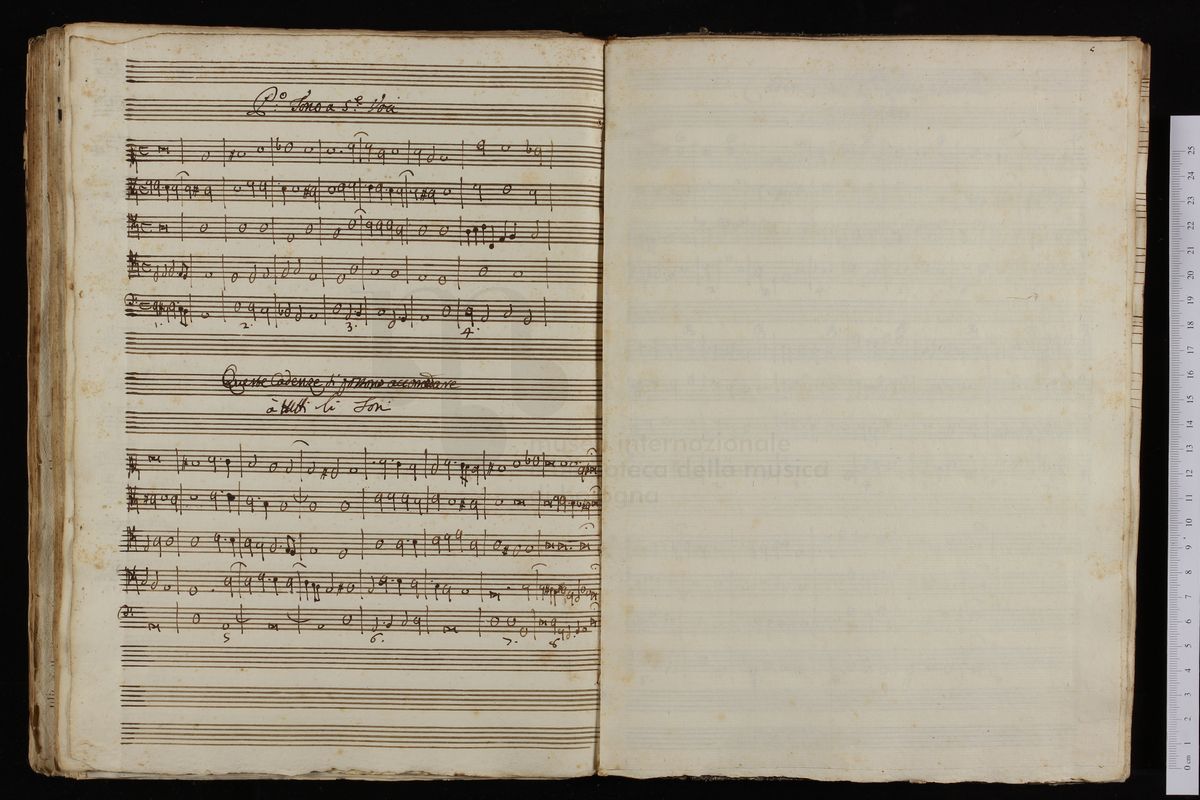 P.º Tono a 5.e Voci
1. 2. 3. 4.
Queste Cadenze si possono accomodare
à tutti li Toni
5 6. 7. 8
museo internazionale
e biblioteca della musica
di bologna
0 cm 1 2 3 4 5 6 7 8 9 10 11 12 13 14 15 16 17 18 19 20 21 22 23 24 25